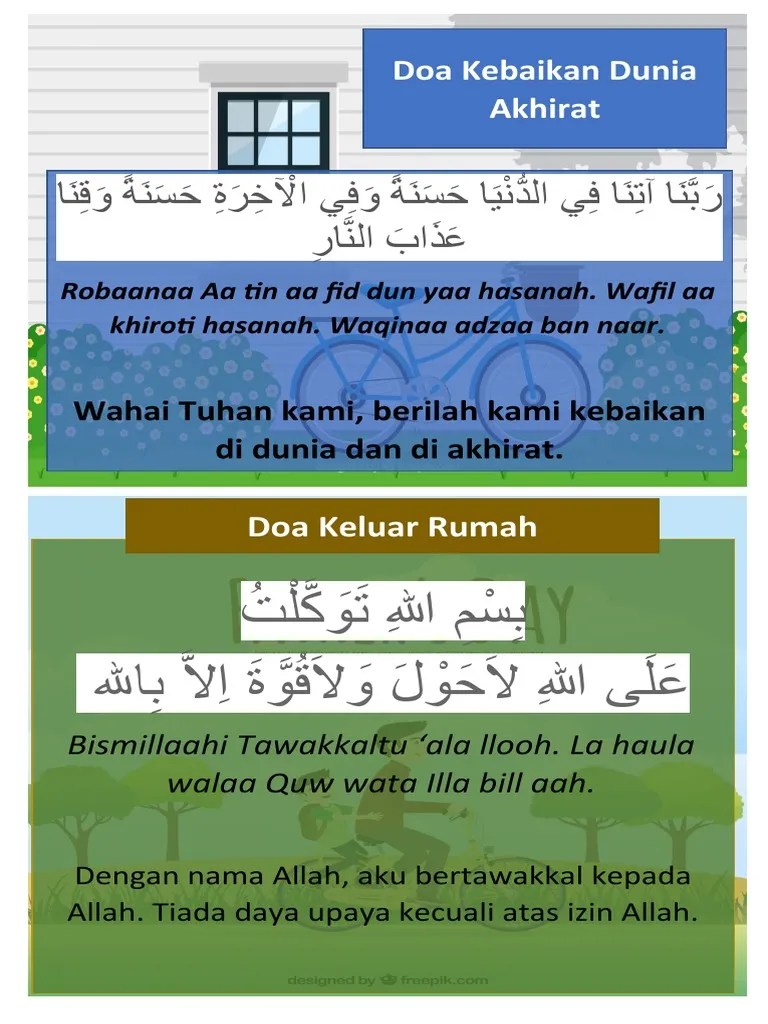 Doa Kebaikan Dunia
Akhirat
رَبَّنَا آتِنَا فِي الدُّنْيَا حَسَنَةً وَفِي الْآخِرَةِ حَسَنَةً وَقِنَا
عَذَابَ النَّارِ
Robaanaa Aa tin aa fid dun yaa hasanah. Wafil aa
khiroti hasanah. Waqinaa adzaa ban naar.
Wahai Tuhan kami, berilah kami kebaikan
di dunia dan di akhirat.
Doa Keluar Rumah
بِسْمِ اللهِ تَوَكَّلْتُ
عَلَى اللهِ لاَحَوْلَ وَلاَقُوَّةَ اِلاَّ بِالله
Bismillaahi Tawakkaltu ‘ala llooh. La haula
walaa Quw wata Illa bill aah.
Dengan nama Allah, aku bertawakkal kepada
Allah. Tiada daya upaya kecuali atas izin Allah.
designed by freepik.com